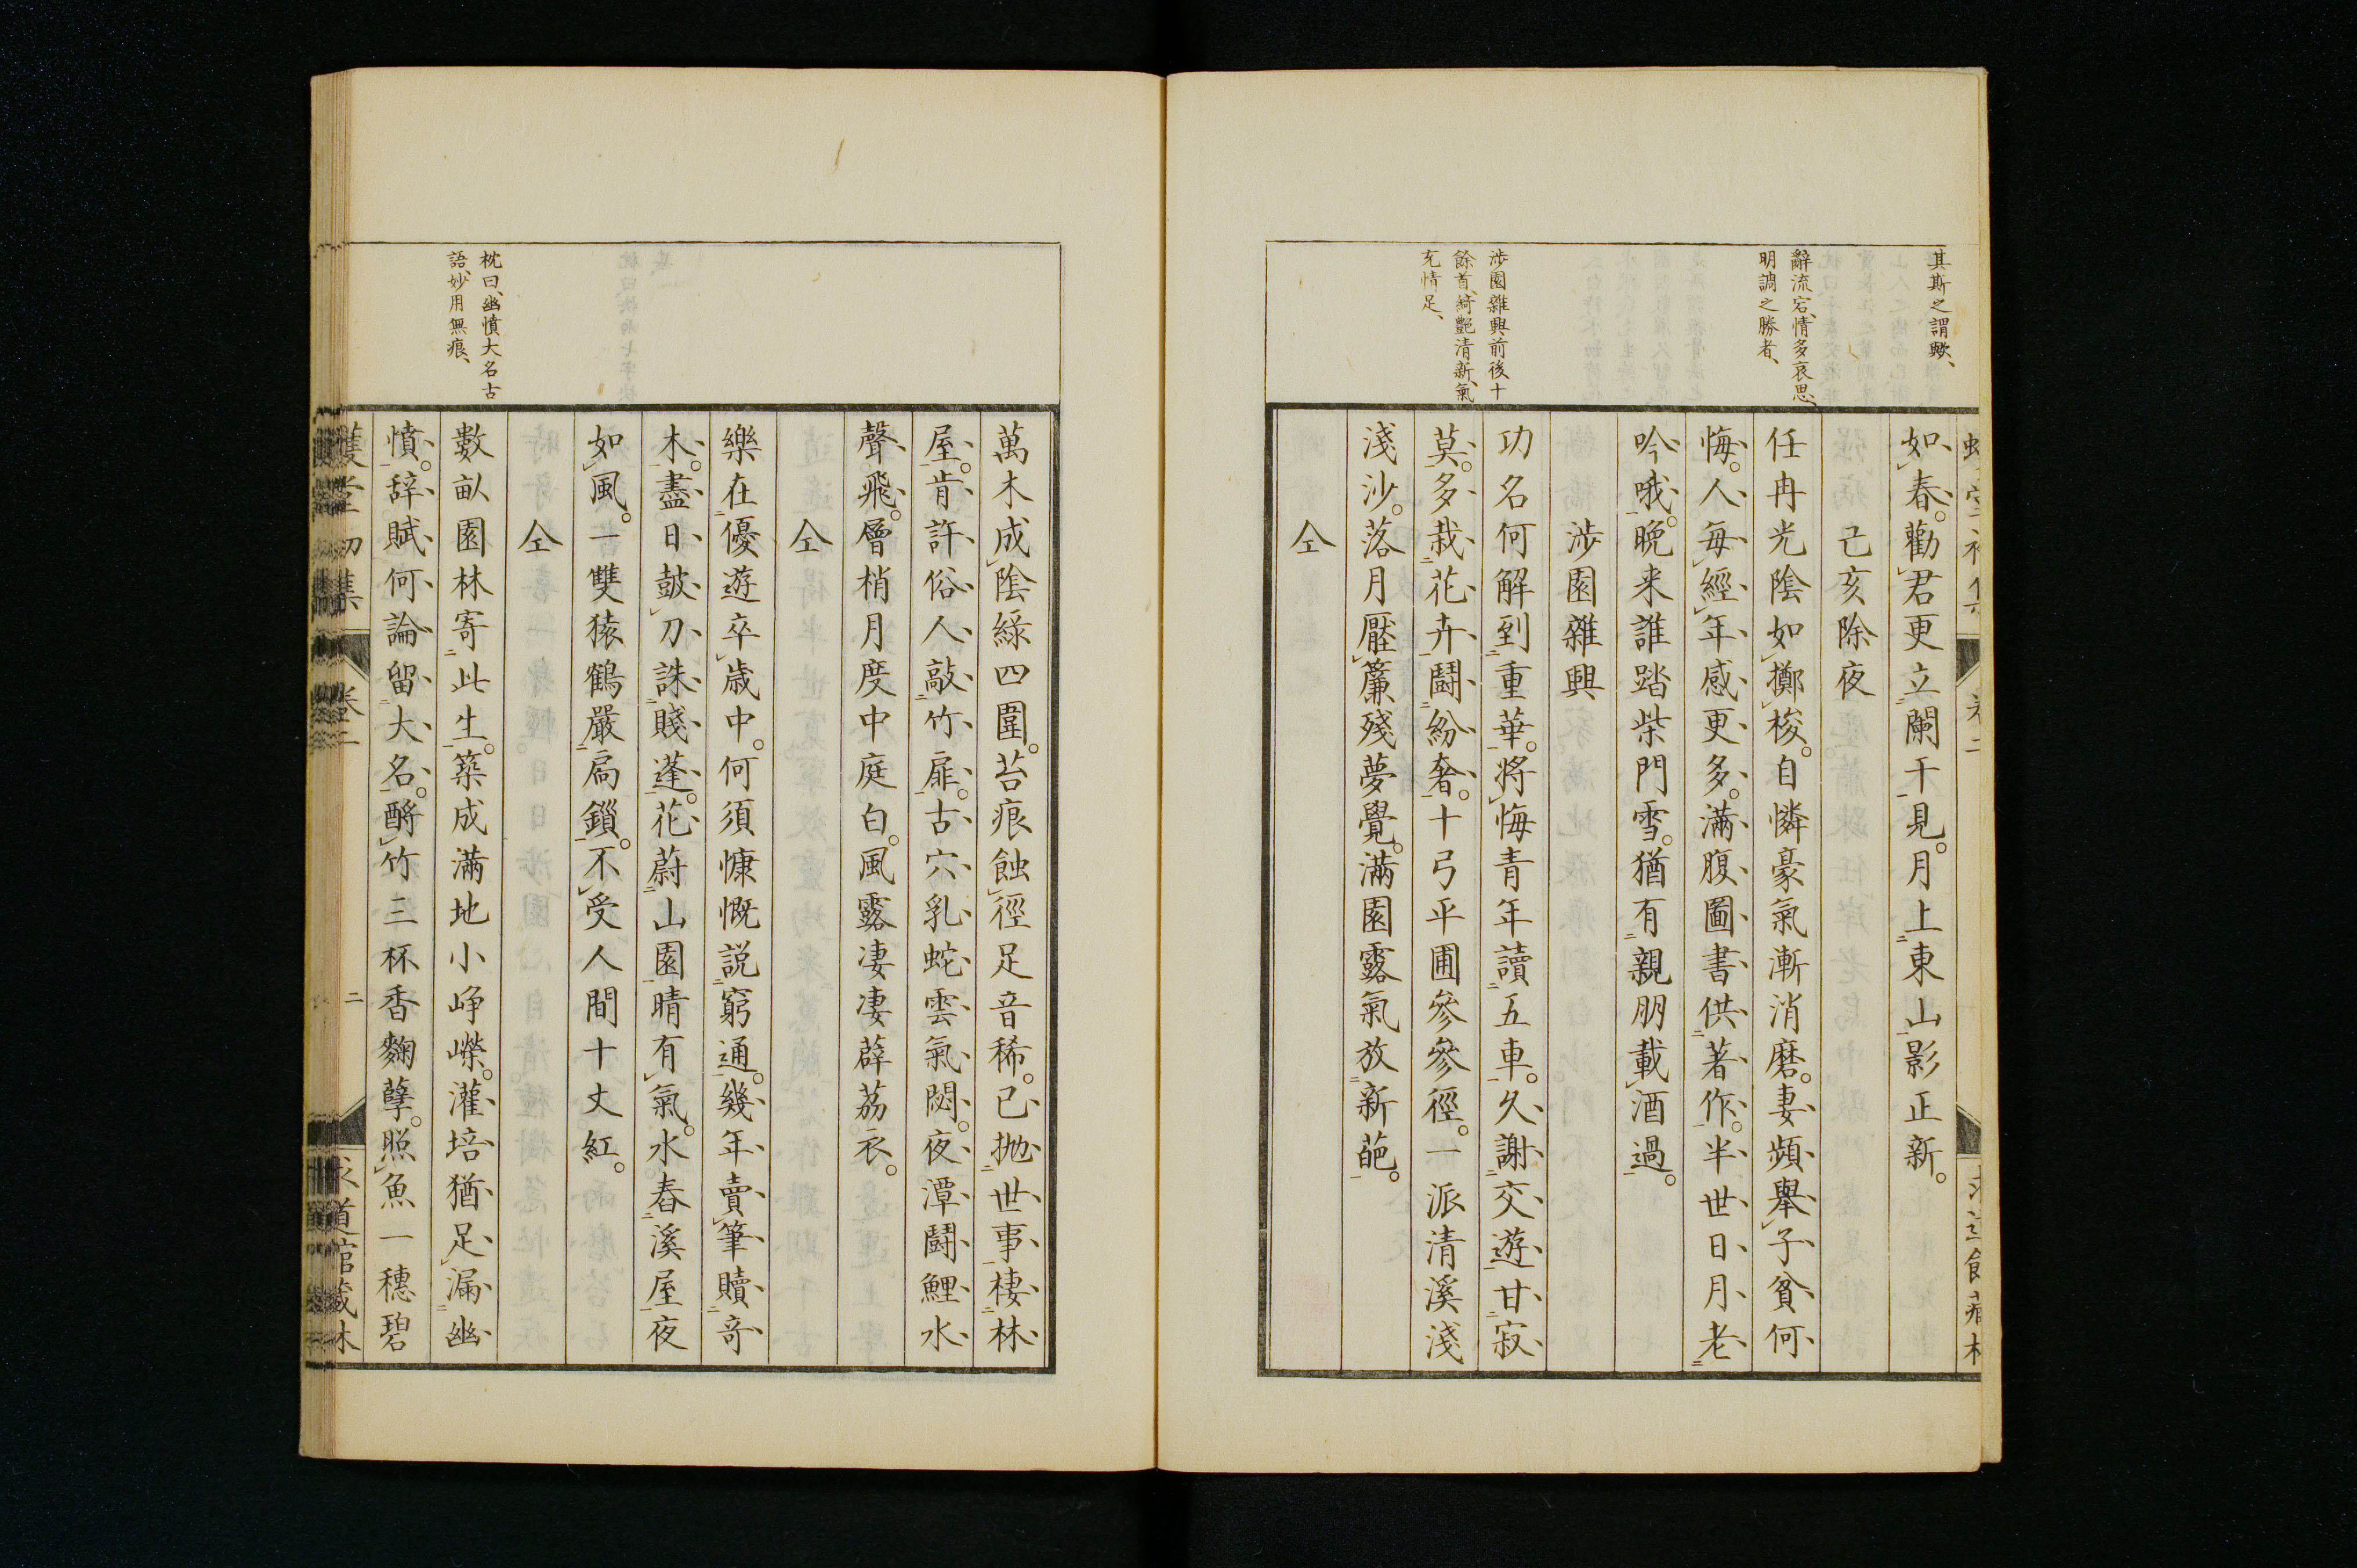 其斯之謂歟、
辭流宕、情多哀思、
明調之勝者、
涉園雜興前後十
餘首、綺艷清新、氣
充情足、
如春。勸君更立闌干見。月上東山影正新。
己亥除夜
任冉光陰如擲梭。自憐豪氣漸消磨。妻頻擧子貧何
悔。人每經年感更多。滿腹圖書供著作。半世日月老
吟哦。晚来誰踏柴門雪。猶有親朋載酒過。
涉園雜興
功名何解到重華。將悔青年讀五車。久謝交遊甘寂
莫。多栽花卉鬪紛奢。十弓平圃參參徑。一派清溪淺
淺沙。落月壓簾殘夢覺。滿園露氣放新葩。
仝
萬木成陰綠四圍。苔痕蝕徑足音稀。已抛世事棲林
屋。肯許俗人敲竹扉。古穴乳蛇雲氣閟。夜潭鬪鯉水
聲飛。層梢月度中庭白。風露凄凄薜荔衣。
仝
樂在優遊卒歲中。何須慷慨説窮通。幾年賣筆贖奇
木。盡日鼓刀誅賤蓬。花蔚山園晴有氣。水舂溪屋夜
如風。一雙猿鶴嚴扃鎻。不受人間十丈紅。
仝
枕曰、幽憤大名古
語、妙用無痕、
數畝園林寄此生。築成滿地小崢嶸。灌培猶足漏幽
憤。辞賦何論留大名。酹竹三杯香麴孽。照魚一穗碧
雙堂初集 卷二 二 求道館藏本